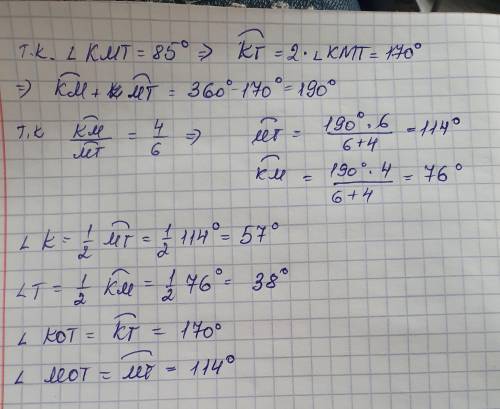 т.к. ∠ KMT = 85° ⇒ K͡T = 2·∠KMT = 170°
⇒ K͡M + M͡T = 360° - 170° = 190°
т.к K͡M/M͡T = 4/6 ⇒ M͡T = 190°·6/6+4 = 114°
K͡M = 190°·4/6+4 = 76°
∠ K = 1/2 M͡T = 1/2 114° = 57°
∠T = 1/2 K͡M = 1/2 76° = 38°
∠ KOT = K͡T = 170°
∠ MOT = M͡T = 114°